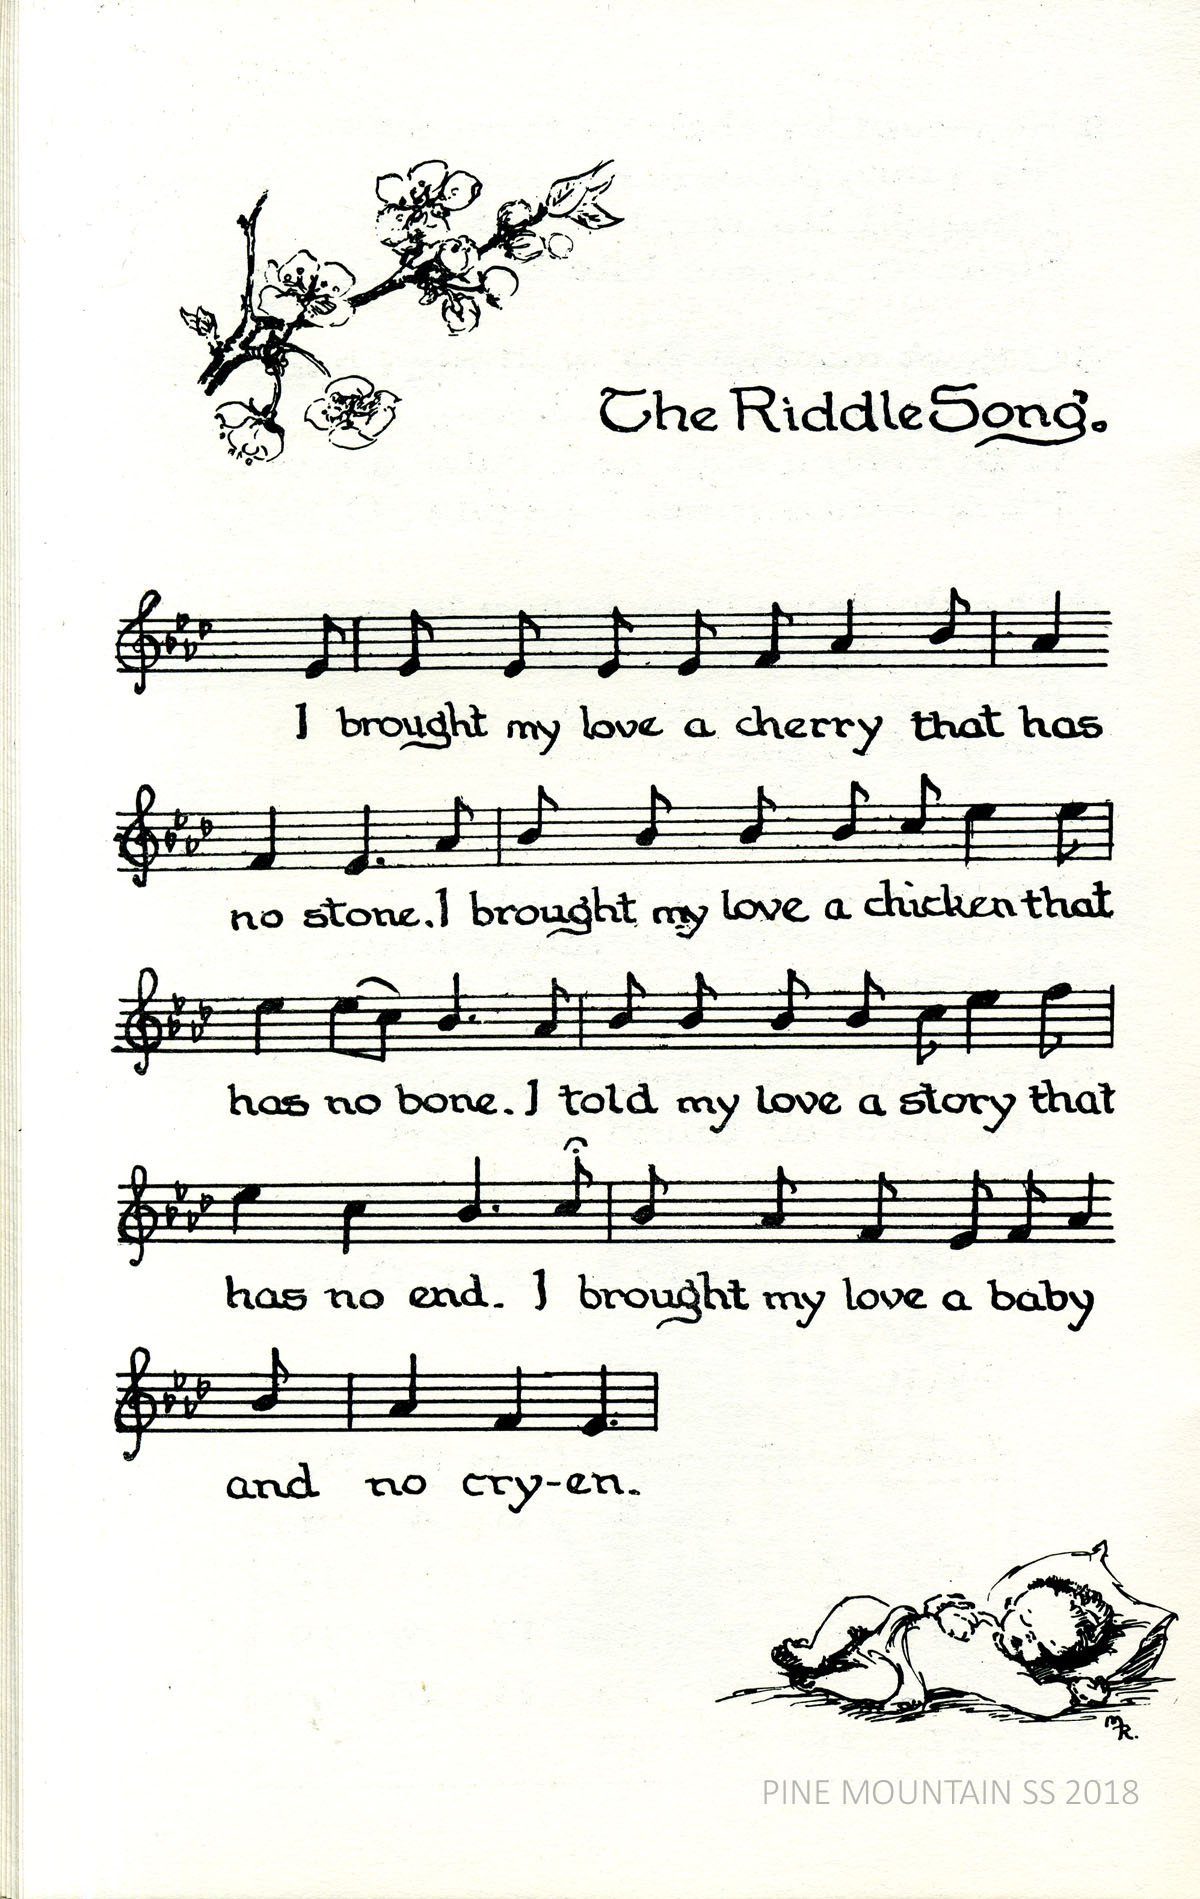 The Riddle Song.
I brought my love a cherry that has
no stone. I brought my love a chicken that
has no bone. I told my love a story that
has no end. I brought my love a baby
and no cry-en.
MR.
PINE MOUNTAIN SS 2018